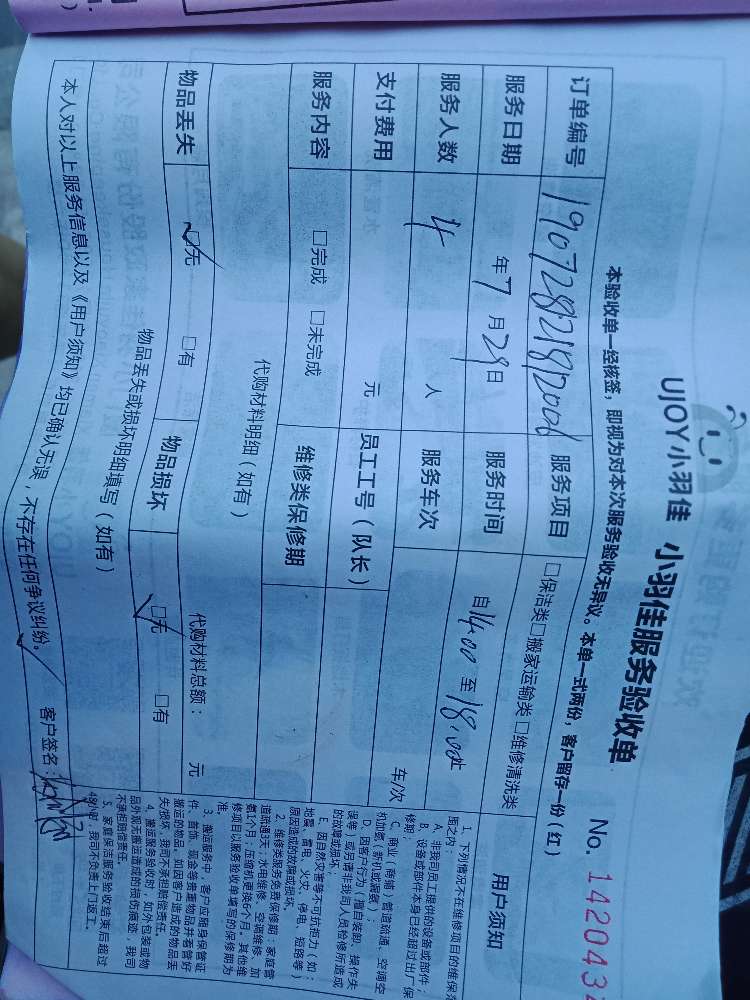 UJOY小羽佳 小羽佳服务验收单
No. 142043
本验收单一经核签，即视为对本次服务验收无异议。本单一式两份，客户留存一份（红）
订单编号 19072821812006 服务项目 □保洁类□搬家运输类□维修清洗类
服务日期 年7月29日 服务时间 自14:00至18:00止
服务人数 4人 服务车次 车/次
支付费用 元 员工工号（队长）
服务内容 □完成 □未完成 维修类保修期
代购材料明细（如有） 代购材料总额： 元
物品丢失 ☑无 □有 物品损坏 ☑无 □有
物品丢失或损坏明细填写（如有）
本人对以上服务信息以及《用户须知》均已确认无误，不存在任何争议纠纷。✓ 客户签名：
用户须知
1、下列情况不在维修项目的维保范
围之内：
A、非我司员工提供的设备或部件；
B、设备或部件本身已经超过出厂保
修期；
C、商业（商铺）管道疏通、空调空
机加氨（新机或漏氨）；
D、因客户行为（擅自装卸、操作失
误等）或另请非我司人员检修所造成
的故障或损坏；
E、因自然灾害等不可抗拒力（如：
地震、雷电、火灾、停电、短路等）
原因造成的故障或损坏。
2、维修类服务免费保修期：家庭管
道疏通3天；水电维修、空调维修、加
氨1个月；压缩机更换6个月。其他维
修项目以服务验收单填写的保修期为
准。
3、搬运服务中，客户应随身保管证
件、首饰、现金等贵重物品并看管好
搬运的物品。如因客户造成的物品丢
失/损坏，我司不承担赔偿责任。
4、搬运服务验收时，如外包装或物
品外观无搬运造成的损伤痕迹，我司
不承担赔偿责任。
5、家庭保洁服务验收结束后超过
48小时，我司不负责上门返工。